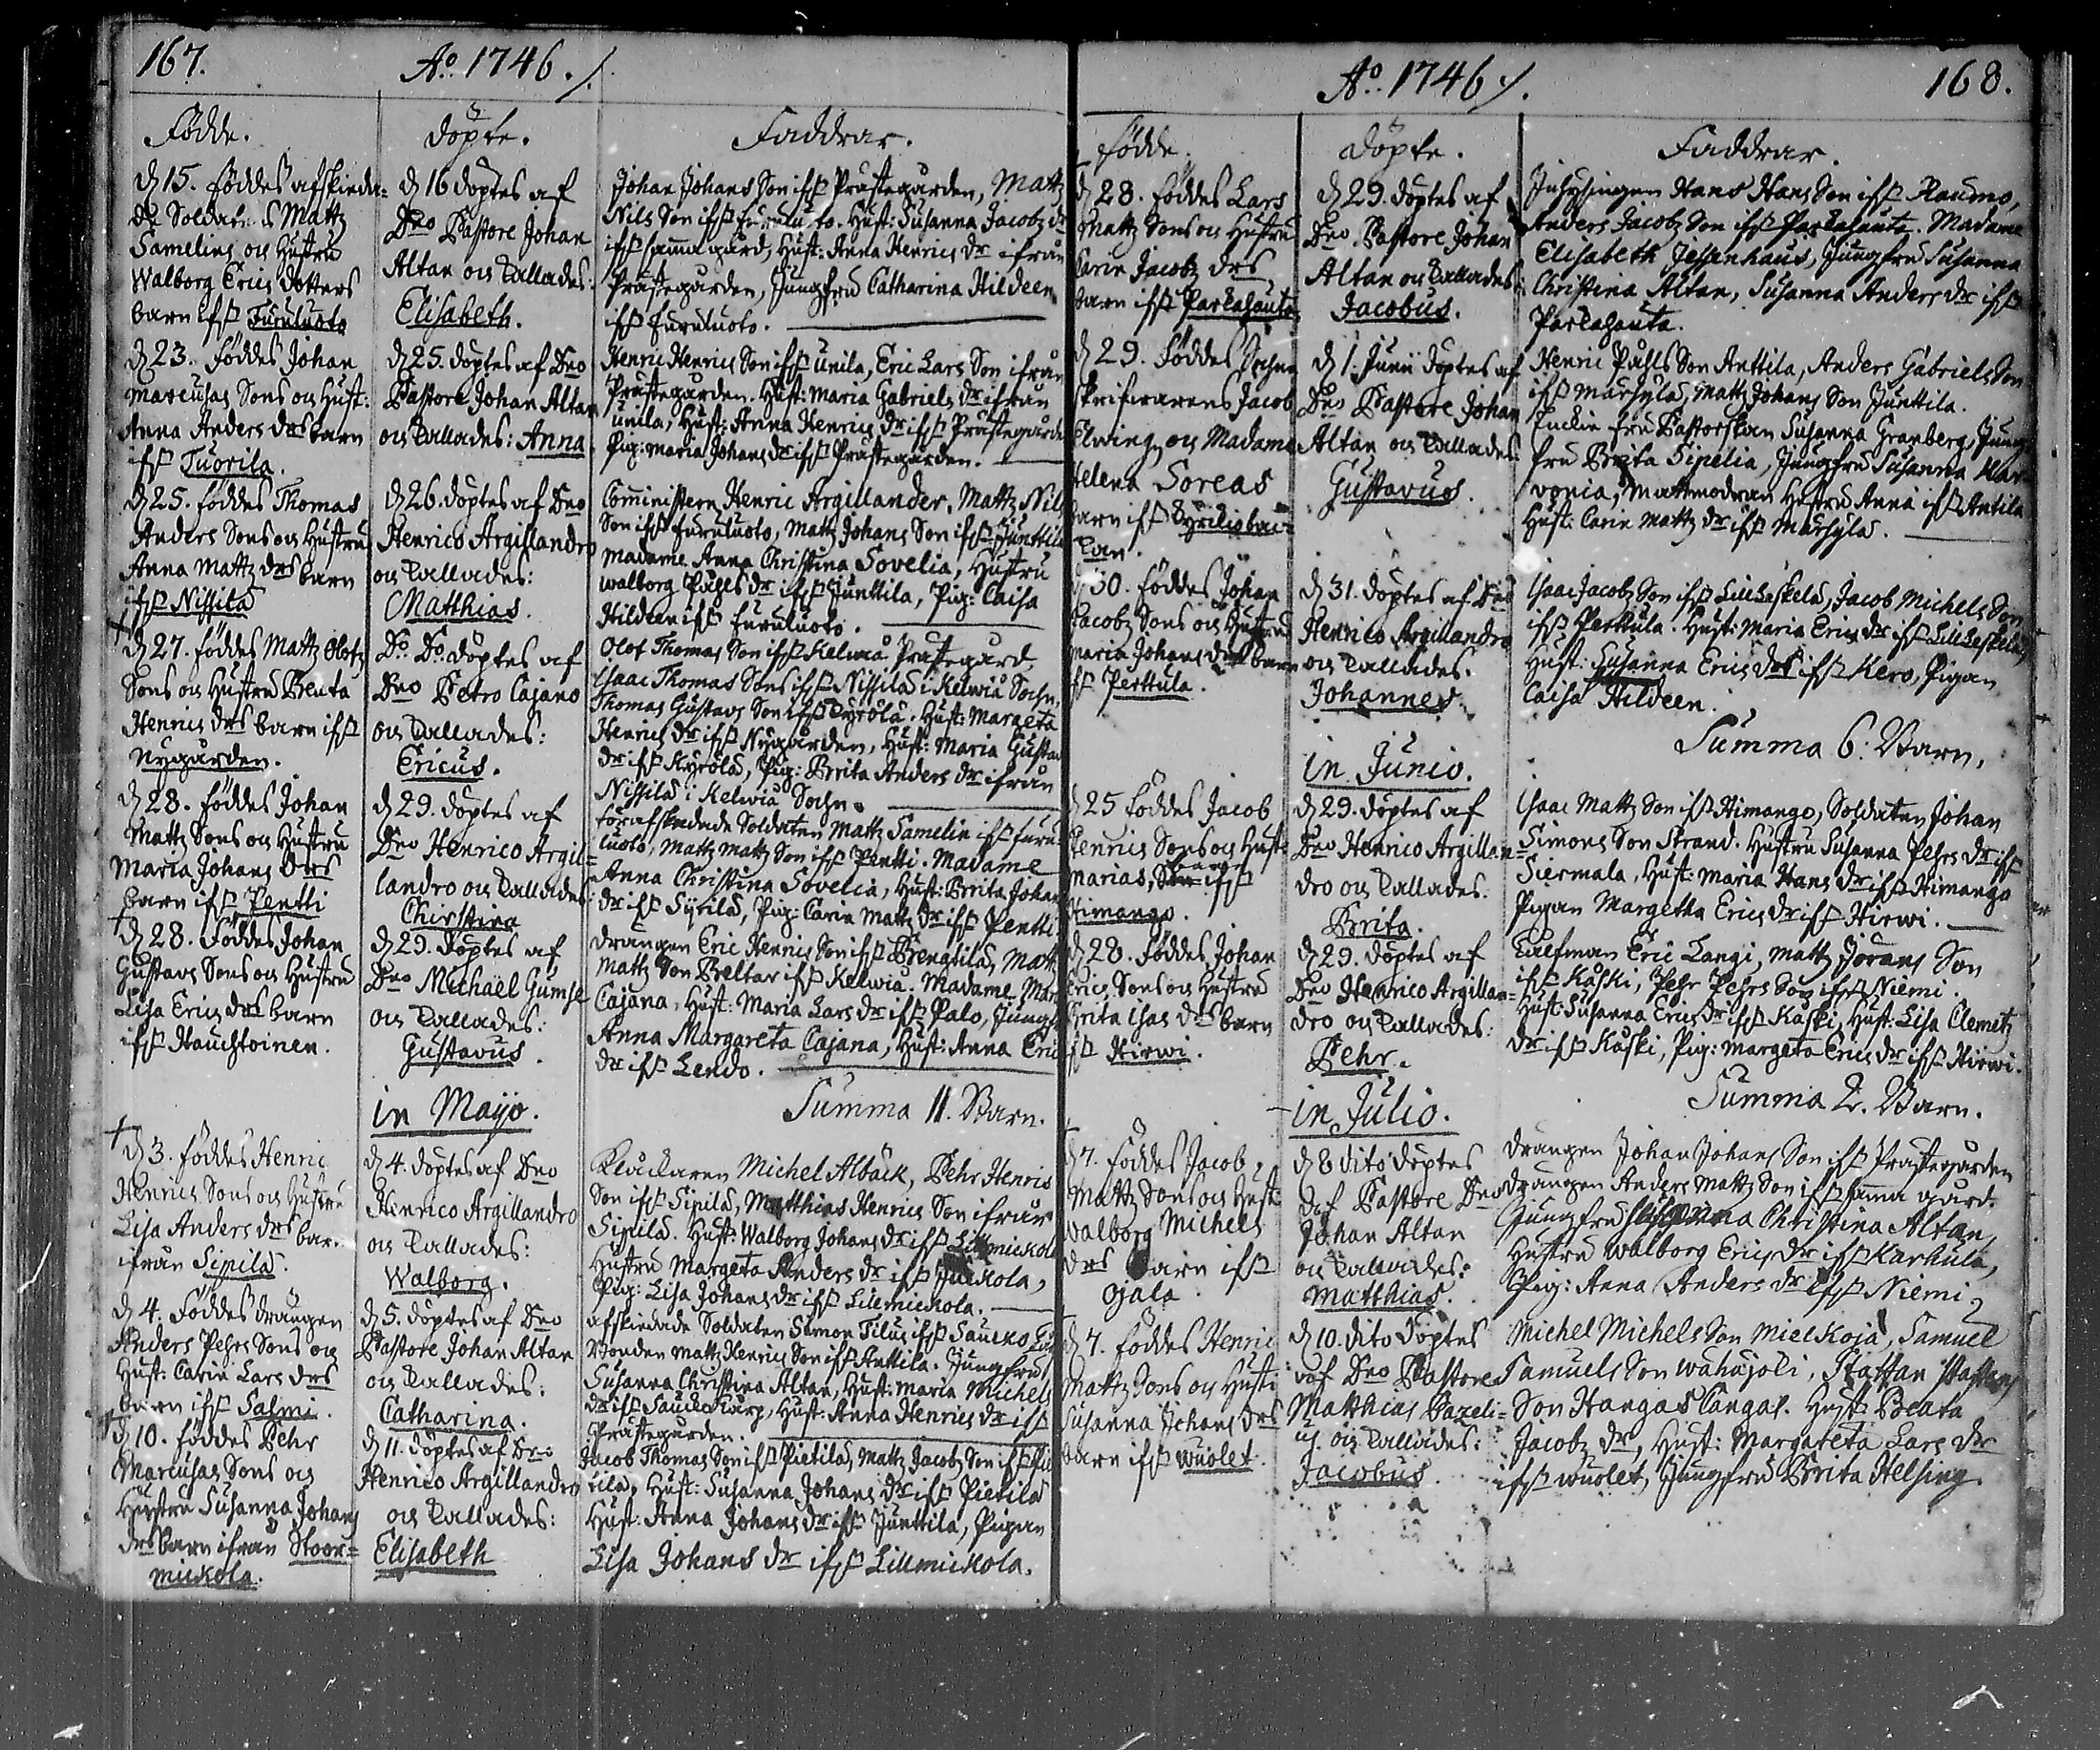 167.
Ao. 1746. /.
Födde.
döpte.
Faddrar.
d 15. föddes afskieda-
de Soldatens Mattz
Samelins och Hustru
Walborg Erics dotters
barn ifr Furuluoto
d 16 döptes af
Dno Pastore Johan
Altan och kallades:
Elisabeth.
Johan Johans Son ifr Prästegården, Mattz
Nils Son ifr Furuluoto. Hust: Susanna Jacobz dr
ifr samma gård, Hust: Anna Henrics dr ifrån
Prästegården, Jungfru Catharina Hildeen
ifr Furuluoto.
d 23. föddes Johan
Marcusas Sons och Hust:
Anna Anders drs barn
ifr Tuorila.
d 25. döptes af Dno
Pastore Johan Altan
och kallades: Anna
Henric Henrics Son ifr Unila, Eric Lars Son ifrån
Prästegården. Hust: Maria Gabriels dr ifrån
Unila, Hust: Anna Henrics dr ifr Prästegården
Pig: Maria Johans dr ifr Prästegården.
d 25. föddes Thomas
Anders Sons och Hustru
Anna Mattz drs barn
ifr Nissilä
d 26. döptes af Dno
Henrico Argillandro
och kallades:
Matthias.
Comministern Henric Argillander, Mattz Nils
Son ifr Furuluoto, Mattz Johans Son ifr Junttila
Madame Anna Christina Sovelia, Hustru
Walborg Påhls dr ifr Junttila, Pig: Caisa
Hildeen ifr Furuluoto.
d 27. föddes Mattz Olofz
Sons och Hustru Beata
Henrics drs barn ifr
Nygården.
Do. Do. döptes af
Dno Petro Cajano
och kallades:
Ericus.
Olof Thomas Son ifr Kelwiå Prästegård,
Isaac Thomas Sons ifr Nissilä i Kelwiå Sochn,
Thomas Gustavs Son ifr Kyrölä. Hust: Margeta
Henrics dr ifr Nygården, Hust: Maria Gustav
dr ifr Kyrölä, Pig: Brita Anders dr ifrån
Nissilä i Kelwiå Sochn.
d 28. föddes Johan
Mattz Sons och Hustru
Maria Johans drs
barn ifr Pentti
d 29. döptes af
Dno Henrico Argil-
landro och kallades:
Christina
förafskedade Soldaten Mattz Samelin ifr Furu
luoto, Mattz Mattz Son ifr Pentti. Madame
Anna Christina Sovelia, Hust: Brita Johans
dr ifr Syrilä, Pig: Carin Mattz dr ifr Pentti.
d 28. föddes Johan
Gustavs Sons och Hustru
Lisa Erics drs barn
ifr Hauchtoinen.
d 29. döptes af
Dno Michaël Gumse
och kallades:
Gustavus.
drängen Eric Henrics Son ifr Brengtilä, Mattz
Mattz Son Breltar ifr Kelwiå. Madame Mar
Cajana, Hust: Maria Lars dr ifr Palo, Jungf
Anna Margareta Cajana, Hust: Anna Eric
dr ifr Lendo.
in Mayo.
Summa 11. Barn.
d 3. föddes Henric
Henrics Sons och Hustru
Lisa Anders drs barn
ifrån Sipilä.
d 4. döptes af Dno
Henrico Argillandro
och kallades:
Walborg.
Klåckaren Michel Albäck, Pehr Henrics
Son ifr Sipilä, Matthias Henrics Son ifrån
Sipilä. Hust: Walborg Johans dr ifr Lillmickola
Hustru Margeta Anders dr ifr Juckola,
Pig: Lisa Johans dr ifr Lillmickola.
d 4. föddes drängen
Anders Pehrs Sons och
Hust: Carin Lars drs
barn ifr Salmi.
d 5. döptes af Dno
Pastore Johan Altan
och kallades:
Catharina.
afskiedade Soldaten Simon Filus ifr Saucko
Bonden Mattz Henrics Son ifr Anttila. Jungfru
Susanna Christina Altan, Hust: Maria Michels
dr ifr Saucko, Hust: Anna Henrics dr ifr
Prästegården.
d 10. föddes Pehr
Marcusas Sons och
Hustru Susanna Johans
drs barn ifrån Stoor-
mickola.
d 11. döptes af Dno
Henrico Argillandro
och kallades:
Elisabeth
Jacob Thomas Son ifr Pietilä, Mattz Jacobz Son ifr Pie
tilä, Hust: Susanna Johans dr ifr Pietilä
Hust: Anna Johans dr ifr Junttila, Pigan
Lisa Johans dr ifr Lillmickola.
Ao. 1746 /.
168.
födde.
döpte.
Faddrar.
d 28. föddes Lars
Mattz Sons och Hustru
Carin Jacobz drs
barn ifr Parkasauta
d 29. döptes af
Dno. Pastore Johan
Altan och kallades:
Jacobus.
Inhysingen Hans Hans Son ifr Raumo,
Anders Jacobz Son ifr Parkasauta. Madame
Elisabeth Jessenhaus, Jungfru Susanna
Christina Altan, Susanna Anders dr ifr
Parkasauta.
d 29. föddes Sochne
skrifwarens Jacob
Elwingz och Madame
Helena Soreas
barn ifr Kyrckiobac-
kan.
d 1. Junii döptes af
Dno Pastore Johan
Altan och kallades:
Gustavus.
Henric Påhls Son Anttila, Anders Gabriels Son
ifr Marsylä, Mattz Johans Son Junttila.
Enckie fru Pastorskan Susanna Granberg, Jung
fru Brita Sipelia, Jungfru Susanna Har
vonia, Mattmodran Hustru Anna ifr Antila
Hust: Carin Mattz dr ifr Marsylä.
d 30. föddes Johan
Jacobz Sons och Hustru
Maria Johans drs barn
ifr Perttula.
d 31. döptes af Dno
Henrico Argillandro
och kallades.
Johannes.
Isaac Jacobz Son ifr Lillkäskelä, Jacob Michels Son
ifr Perttula. Hust: Maria Erics dr ifr Lillkäskelä,
Hust: Susanna Erics drs ifr Kero, Pigan
Caisa Hildeen.
in Junio.
Summa 6: Barn.
d 25 föddes Jacob
Henrics Sons och Hust:
Marias, barn ifr
Himango.
d 29. döptes af
Dno Henrico Argillan-
dro och kallades.
Brita.
Isaac Mattz Son ifr Himango, Soldaten Johan
Simons Son Strand. Hustru Susanna Pehrs dr ifr
Siermala, Hust: Maria Hans dr ifr Himango
Pigan Margetha Erics dr ifr Hirwi.
d 28. föddes Johan
Erics Sons och Hustru
Brita Isacs drs barn
ifr Hirwi.
d 29. döptes af
Dno Henrico Argillan-
dro och kallades:
Pehr.
Eric Langi, Mattz Jörans Son
ifr Kåski, Pehr Pehrs Son ifr Niemi.
Hust: Susanna Erics dr ifr Kåski, Hust: Lisa Clemetz
dr ifr Kåski, Pig: Margeta Erics dr ifr Hirwi.
in Julio.
Summa 2. Barn.
d 7. föddes Jacob
Mattz Sons och Hust:
Walborg Michels
drs barn ifr
Ojala.
d 8 dito döptes
af Pastore Dno
Johan Altan
och kallades:
Matthias.
drängen Johan Johans Son ifr Prästegården
drängen Anders Mattz Son ifr samma gård.
Jungfru Christina Altan,
Hustru Walborg Erics dr ifr Karhula,
Pig: Anna Anders dr ifr Niemi
d 7. föddes Henric
Mattz Sons och Hust:
Susanna Johans drs
barn ifr Wuolet.
d 10. dito döptes
af Dno Pastore
Matthias Pazeli-
us. och kallades:
Jacobus.
Michel Michels Son Mielkoja, Samuel
Samuels Son Wähäjoki, Staffan Staffans
Son Hangaskangas. Hust: Beata
Jacobz dr, Hust: Margareta Lars dr
ifr Wuolet, Jungfru Brita Helsing.